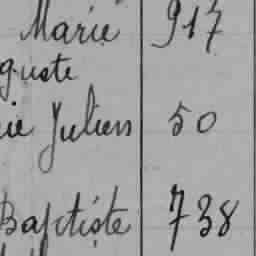 Marie 917
guste
ie Julien 50
Baptiste 738